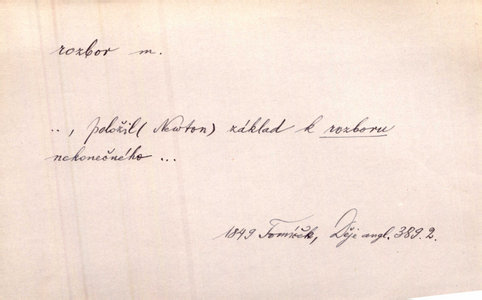 rozbor m.
.., položil (Newton) základ k rozboru
nekonečného ...
1849 Tomíček, Děje angl. 389.2.